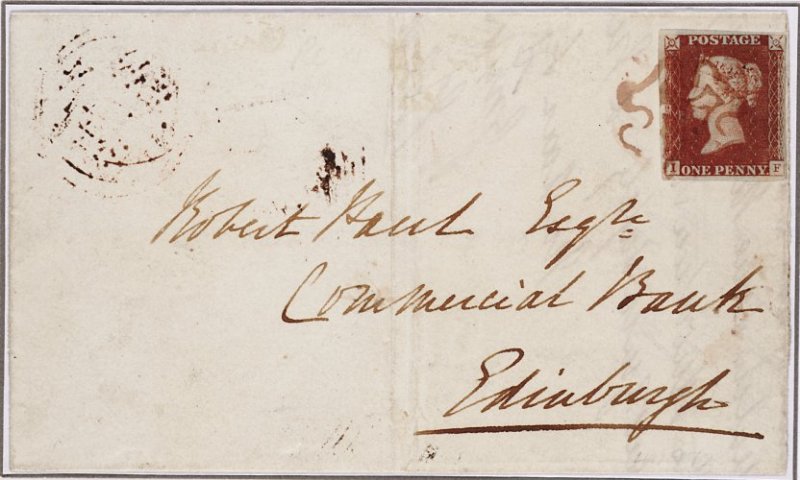 POSTAGE
I ONE PENNY F
Robert Paul Esqre
Commercial Bank
Edinburgh